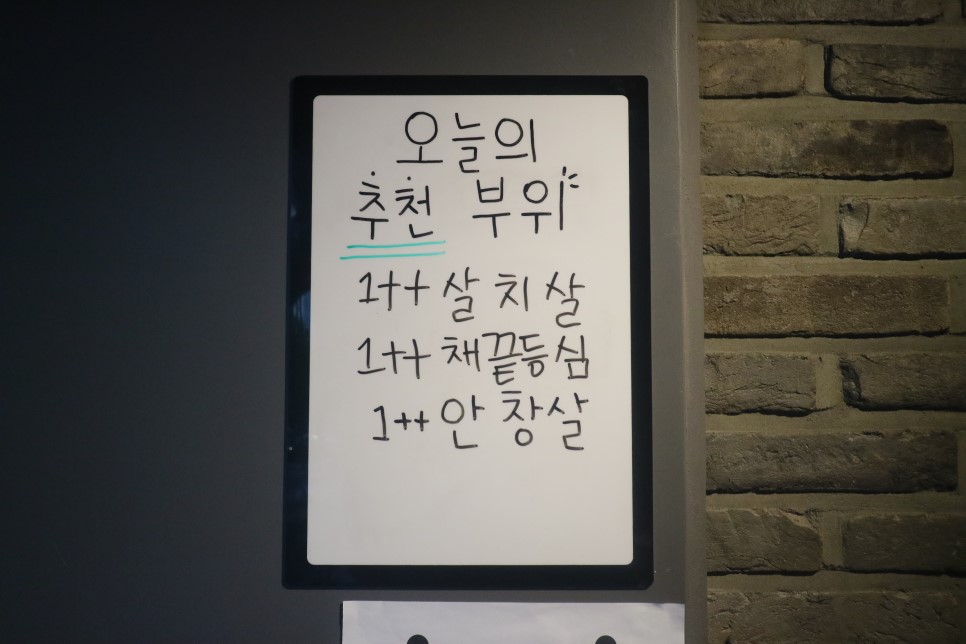 오늘의
추천 부위
1++ 살치살
1++ 채끝등심
1++ 안창살